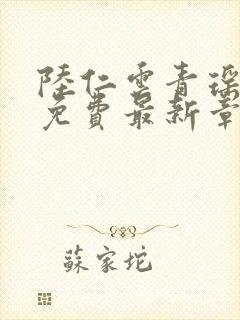 陸仁雲青瑤
免費最新章
蘇家坨